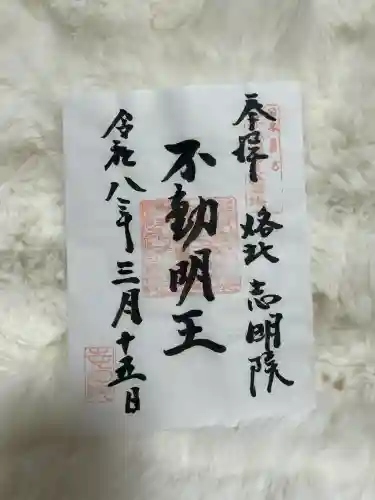 奉拝 洛北 志明院
不動明王
令和八年三月十五日